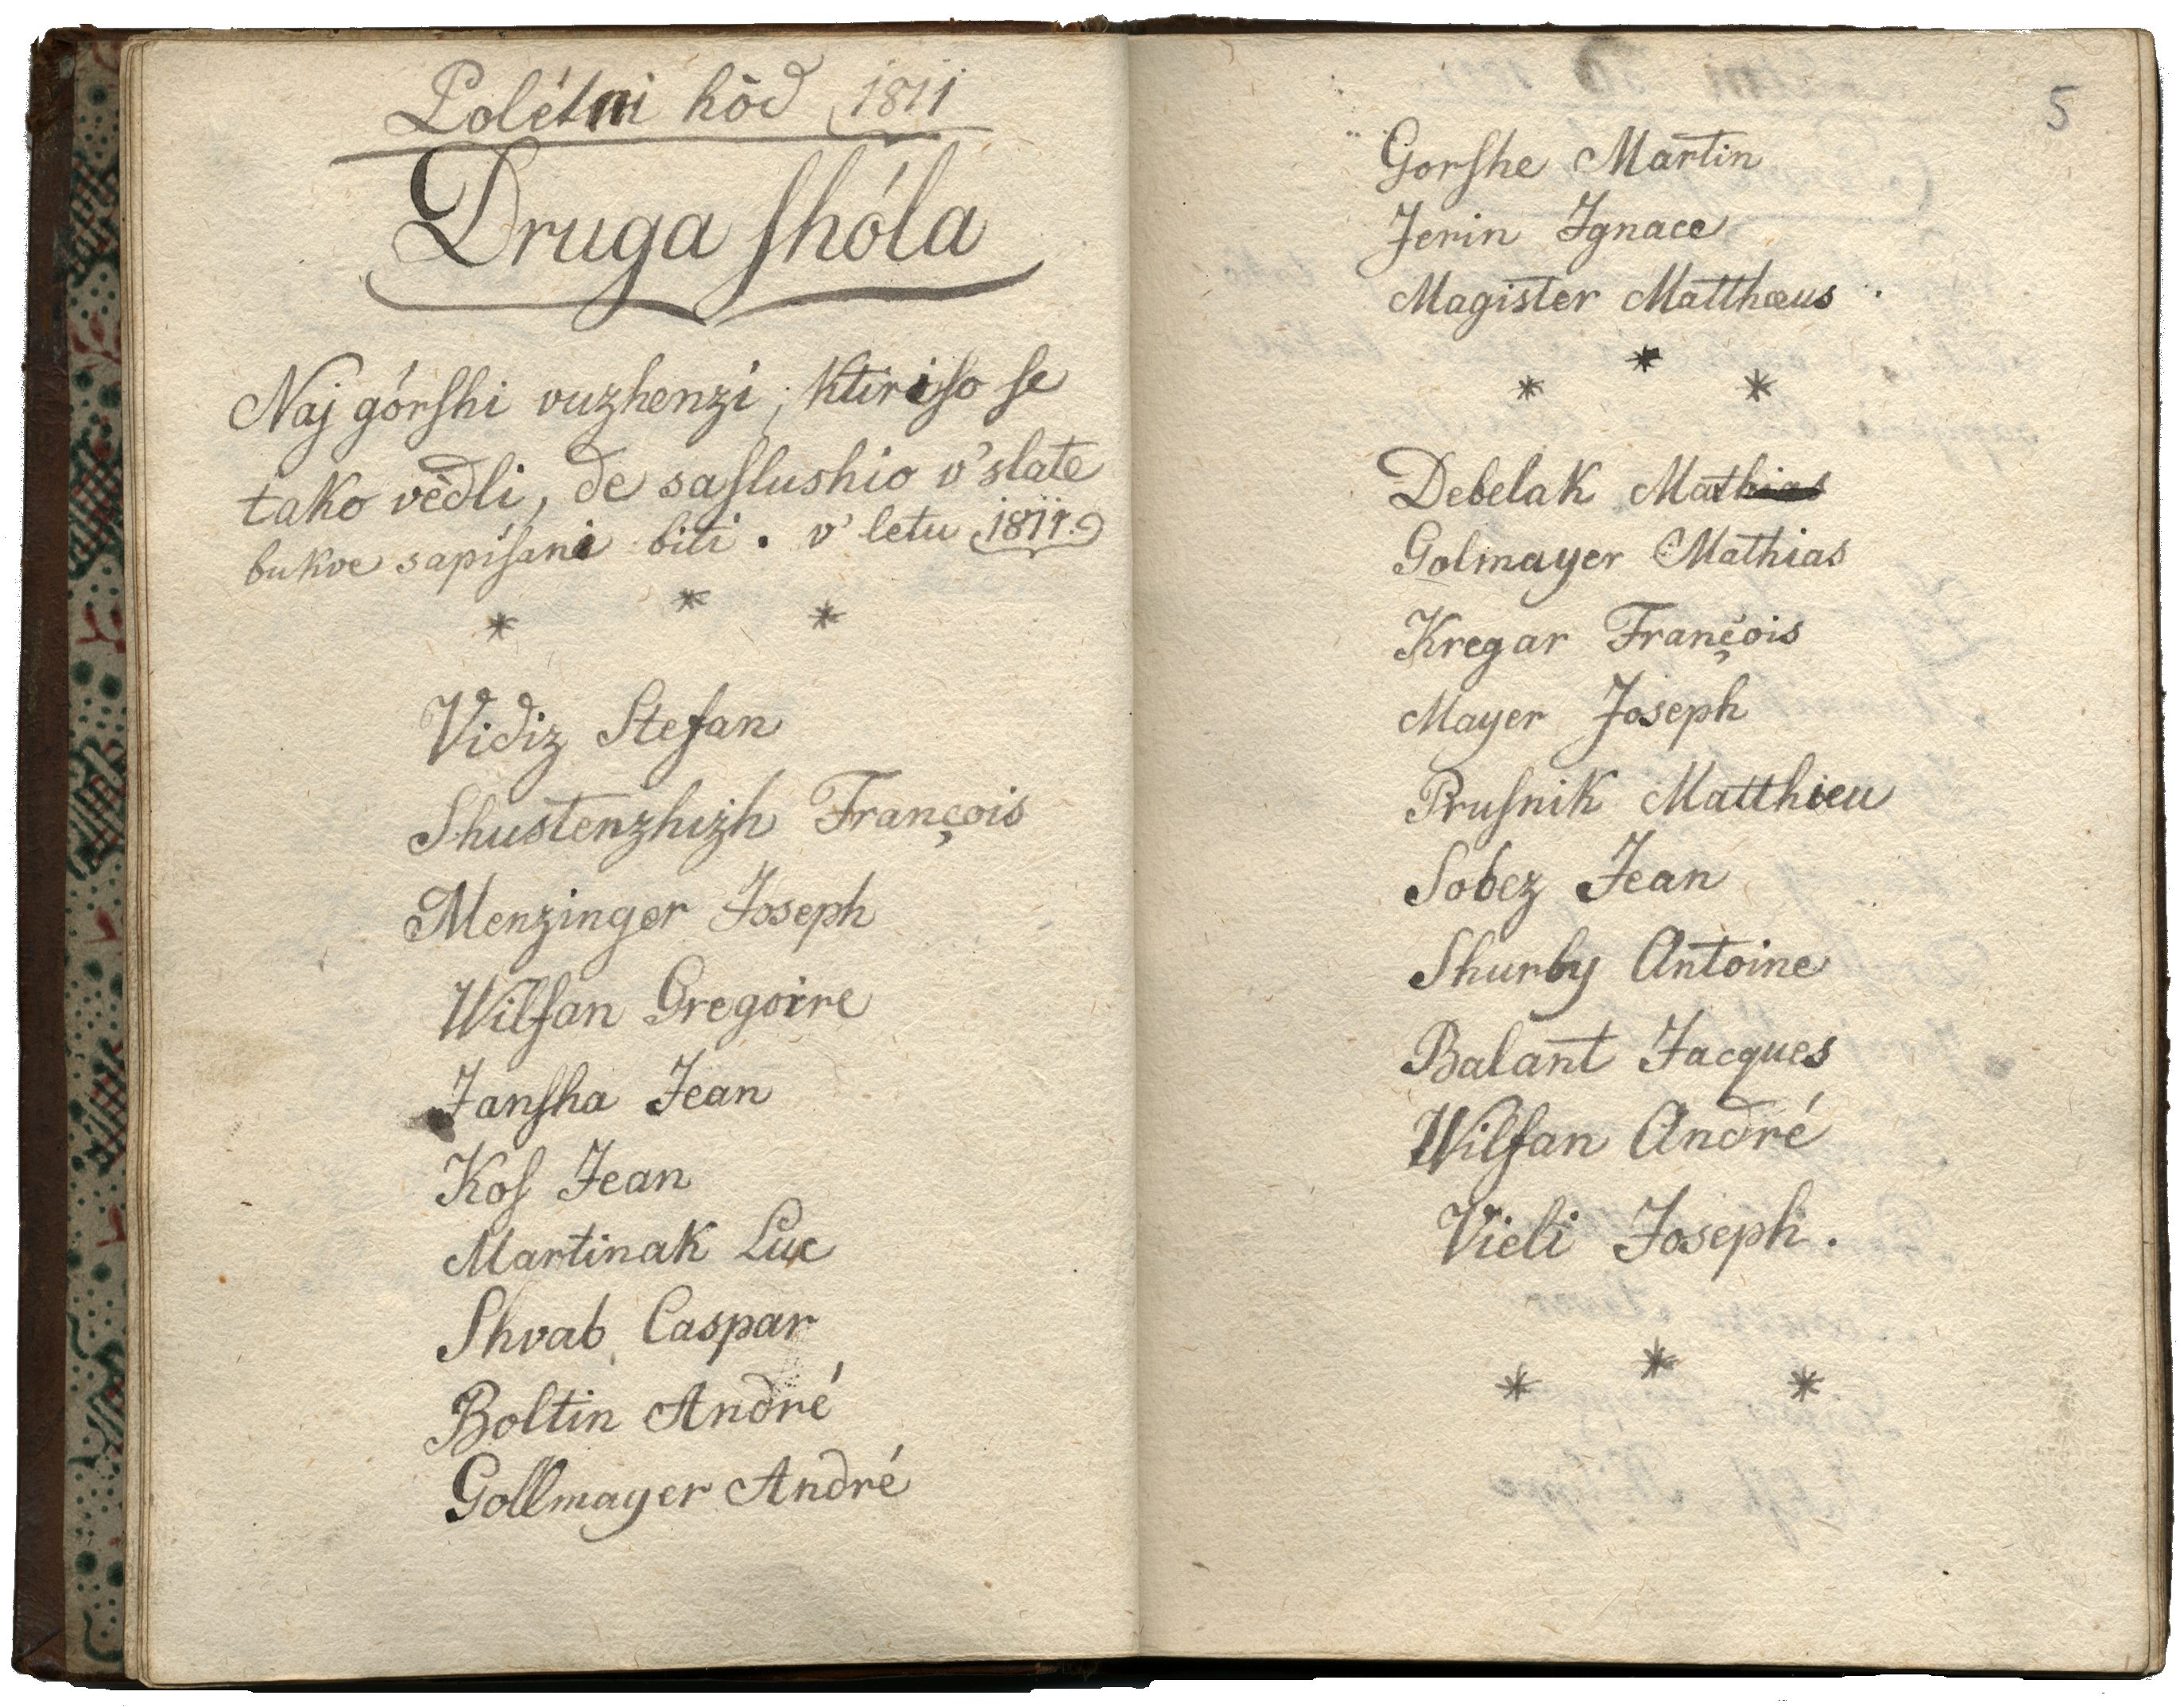 Polétni hōd 1811
Druga ſhóla
Naj górſhi vuzhenzi, ktiri ſo ſe
tako vēdli, de saſlushio v' slate
bukve sapíſani biti. v' letu 1811.
* * *
Vidiz Stefan
Shustenzhizh François
Menzinger Joseph
Wilfan Gregoire
Janſha Jean
Koſ Jean
Martinak Luc
Shvab Caspar
Boltin André
Gollmayer André
5
Gorſhe Martin
Jerin Ignace
Magister Matthæus
* * *
Debelak Mathias
Golmayer Mathias
Kregar François
Mayer Joseph
Pruſnik Matthieu
Sobez Jean
Shurby Antoine
Balant Jacques
Wilfan André
Vieli Joseph.
* * *